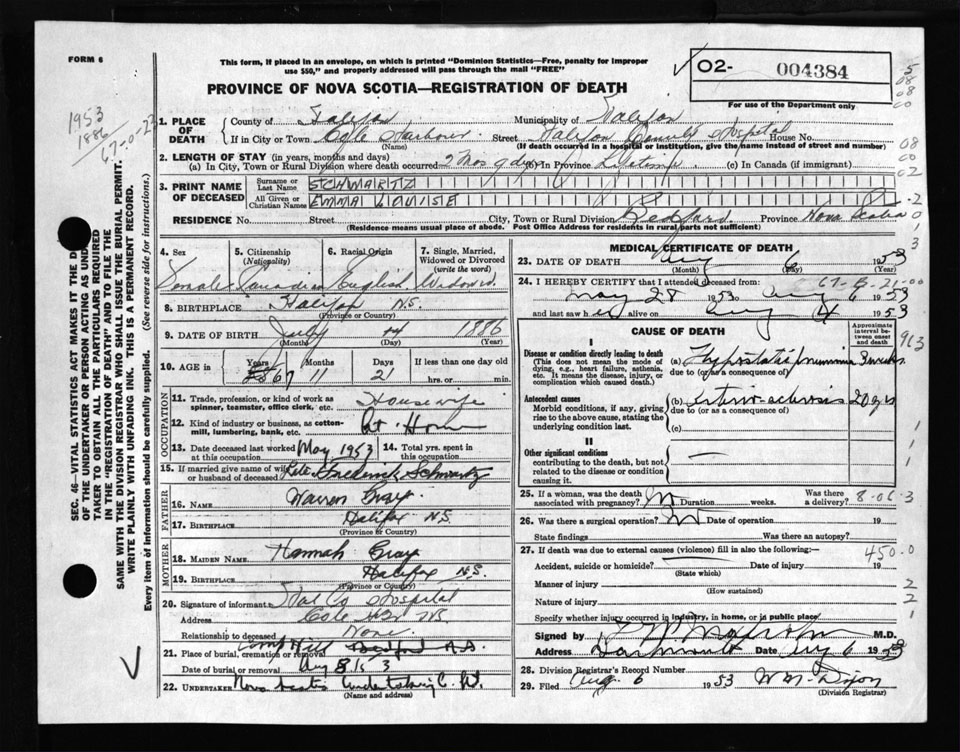 FORM 6
This form, if placed in an envelope, on which is printed "Dominion Statistics—Free, penalty for improper
use $50," and properly addressed will pass through the mail "FREE"
PROVINCE OF NOVA SCOTIA—REGISTRATION OF DEATH
O2- 004384
For use of the Department only
1953
1886
67-0-23
1. PLACE OF DEATH
County of Halifax Municipality of Halifax
If in City or Town Cole Harbour Street Halifax County Hospital House No.
(Name) (If death occurred in a hospital or institution, give the name instead of street and number)
2. LENGTH OF STAY (in years, months and days)
(a) In City, Town or Rural Division where death occurred 2 mos 9 dys (b) In Province Lifetime (c) In Canada (if immigrant)
3. PRINT NAME OF DECEASED
Surname or Last Name SCHWARTZ
All Given or Christian Names EMMA LOUISE
RESIDENCE No. Street City, Town or Rural Division Bedford Province Nova Scotia
(Residence means usual place of abode. Post Office Address for residents in rural parts not sufficient)
4. Sex 5. Citizenship (Nationality) 6. Racial Origin 7. Single, Married, Widowed or Divorced (write the word)
Female Canadian English Widowed
8. BIRTHPLACE Halifax N.S.
(Province or Country)
9. DATE OF BIRTH July 14 1886
(Month) (Day) (Year)
10. AGE in Years Months Days If less than one day old
67 11 21 hrs. or min.
OCCUPATION
11. Trade, profession, or kind of work as spinner, teamster, office clerk, etc. Housewife
12. Kind of industry or business, as cotton-mill, lumbering, bank, etc. At Home
13. Date deceased last worked at this occupation May 1953 14. Total yrs. spent in this occupation
15. If married give name of wife or husband of deceased Late Frederick Schwartz
FATHER
16. NAME Warren Gray
17. BIRTHPLACE Halifax N.S.
(Province or Country)
MOTHER
18. MAIDEN NAME Hannah Gray
19. BIRTHPLACE Halifax N.S.
(Province or Country)
20. Signature of informant Hal Co Hospital
Address Cole Hbr NS
Relationship to deceased None
21. Place of burial, cremation or removal Camp Hill Bedford N.S.
Date of burial or removal Aug 8 1953
22. UNDERTAKER Nova Scotia Undertaking C.
(Name and address)
MEDICAL CERTIFICATE OF DEATH
23. DATE OF DEATH Aug 6 1953
(Month) (Day) (Year)
24. I HEREBY CERTIFY that I attended deceased from:
May 28 1953 to Aug 6 1953
and last saw her alive on Aug 4 1953
CAUSE OF DEATH
Approximate interval between onset and death
I
Disease or condition directly leading to death
(This does not mean the mode of dying, e.g., heart failure, asthenia, etc. It means the disease, injury, or complication which caused death.)
(a) Hypostatic pneumonia 3 weeks
due to (or as a consequence of)
Antecedent causes
Morbid conditions, if any, giving rise to the above cause, stating the underlying condition last.
(b) arterio-sclerosis 20 yrs
due to (or as a consequence of)
(c)
II
Other significant conditions
contributing to the death, but not related to the disease or condition causing it.
25. If a woman, was the death associated with pregnancy? N Duration weeks. Was there a delivery?
26. Was there a surgical operation? N Date of operation 19
State findings Was there an autopsy?
27. If death was due to external causes (violence) fill in also the following:—
Accident, suicide or homicide? Date of injury 19
(State which)
Manner of injury
(How sustained)
Nature of injury
Specify whether injury occurred in industry, in home, or in public place
Signed by M.D.
Address Dartmouth Aug 6 1953
28. Division Registrar's Record Number
29. Filed Aug. 6 1953 W M. Dixon
(Division Registrar)
963
8-06-3
450-0
SEC. 46—VITAL STATISTICS ACT MAKES IT THE
OF THE UNDERTAKER OR PERSON ACTING AS UNDER
TAKER TO OBTAIN ALL THE PARTICULARS REQUIRED
IN THE "REGISTRATION OF DEATH" AND TO FILE THE
SAME WITH THE DIVISION REGISTRAR WHO SHALL ISSUE THE BURIAL PERMIT.
WRITE PLAINLY WITH UNFADING INK. THIS IS A PERMANENT RECORD.
Every item of information should be carefully supplied. (See reverse side for instructions.)